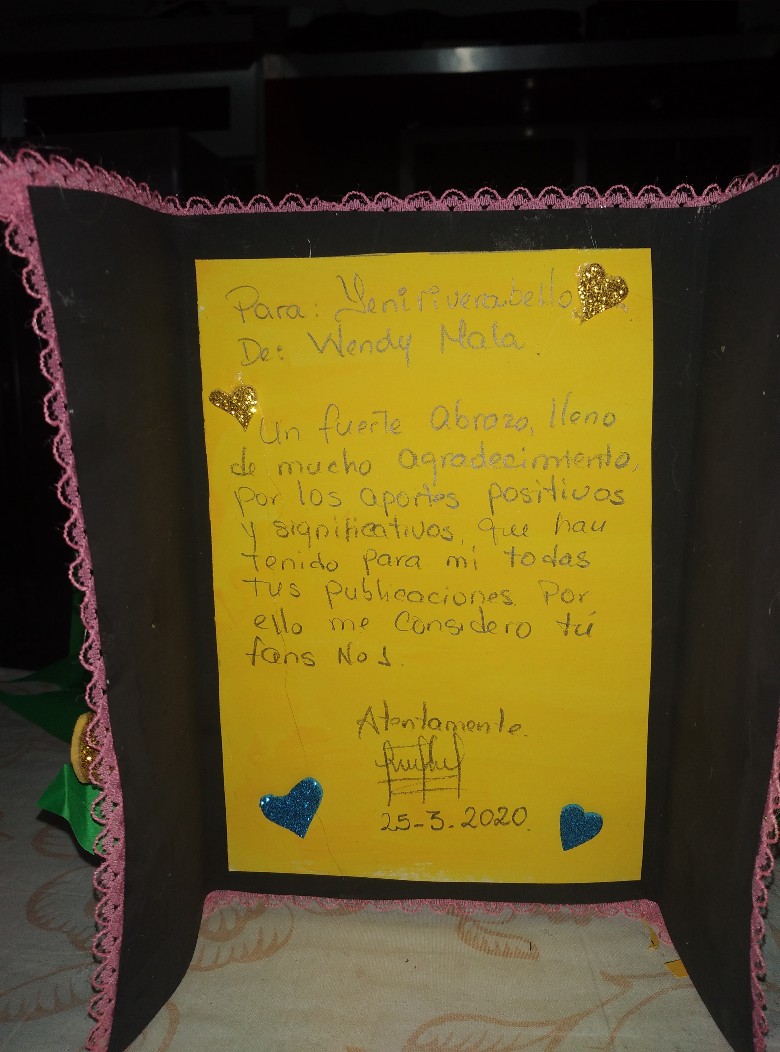 Para: Yeniriverabello
De: Wendy Mata.
Un fuerte Abrazo, lleno
de mucho agradecimiento,
por los aportes positivos
y significativos, que han
tenido para mi todas
tus publicaciones. Por
ello me considero tú
fans No1.
Atentamente.
25-3-2020.